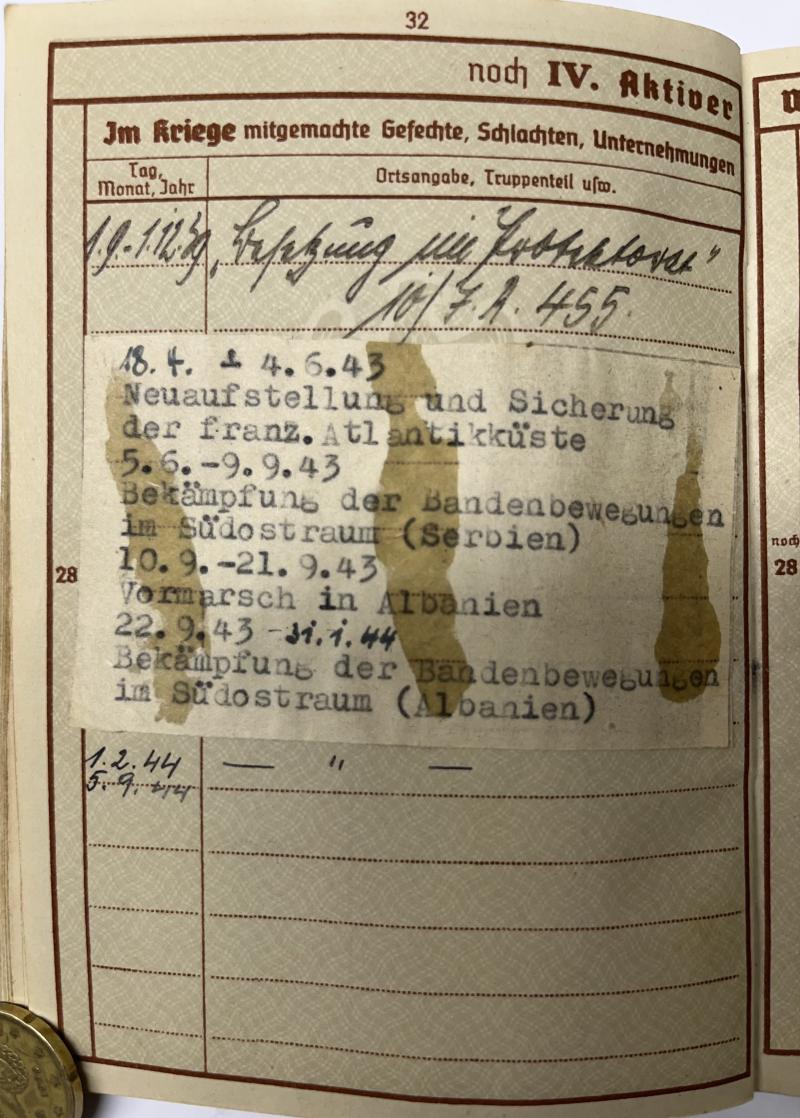 32
noch IV. Aktiver
Im Kriege mitgemachte Gefechte, Schlachten, Unternehmungen
Tag, Monat, Jahr
Ortsangabe, Truppenteil usw.
1.9.-1.12.39 „Besetzung im Protektorat"
10/ J.R. 455.
18.4. - 4.6.43
Neuaufstellung und Sicherung
der franz. Atlantikküste
5.6.-9.9.43
Bekämpfung der Bandenbewegungen
im Südostraum (Serbien)
10.9.-21.9.43
Vormarsch in Albanien
22.9.43 -31.1.44
Bekämpfung der Bandenbewegungen
im Südostraum (Albanien)
28
noch
28
1.2.44 — " —
5.9.44